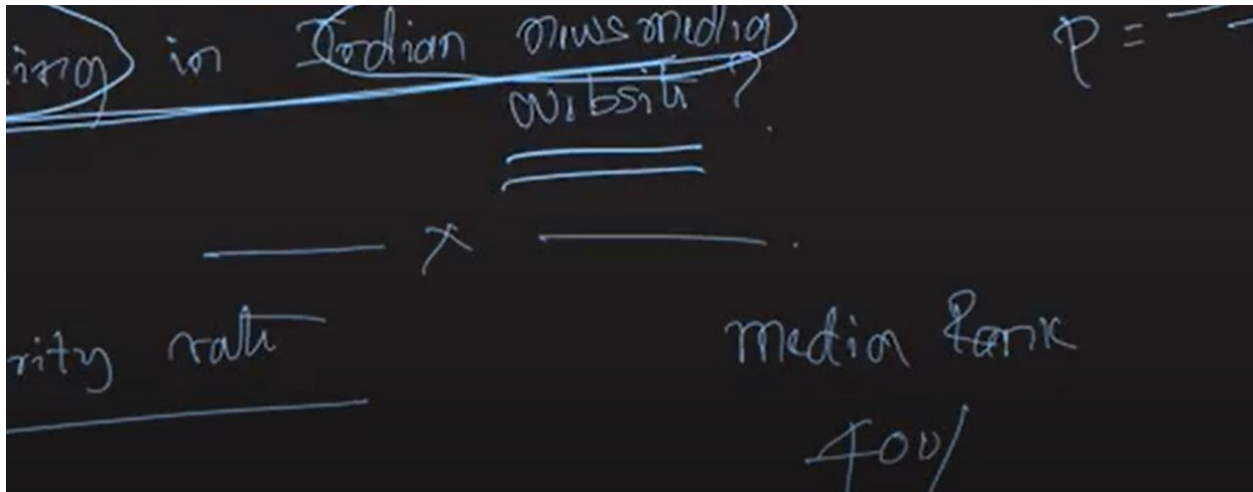 ing) in Indian news media P =
website ?
×
rity rate media Rank
400/